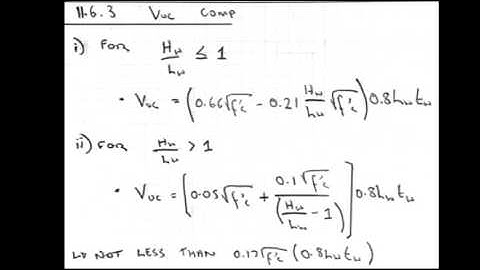 11.6.3 Vuc COMP
i) FOR Hw/Lw ≤ 1
• Vuc = (0.66√f'c - 0.21 Hw/Lw √f'c) 0.8LwTw
ii) FOR Hw/Lw > 1
• Vuc = [0.05√f'c + 0.1√f'c/(Hw/Lw - 1)] 0.8LwTw
↳ NOT LESS THAN 0.17√f'c (0.8LwTw)